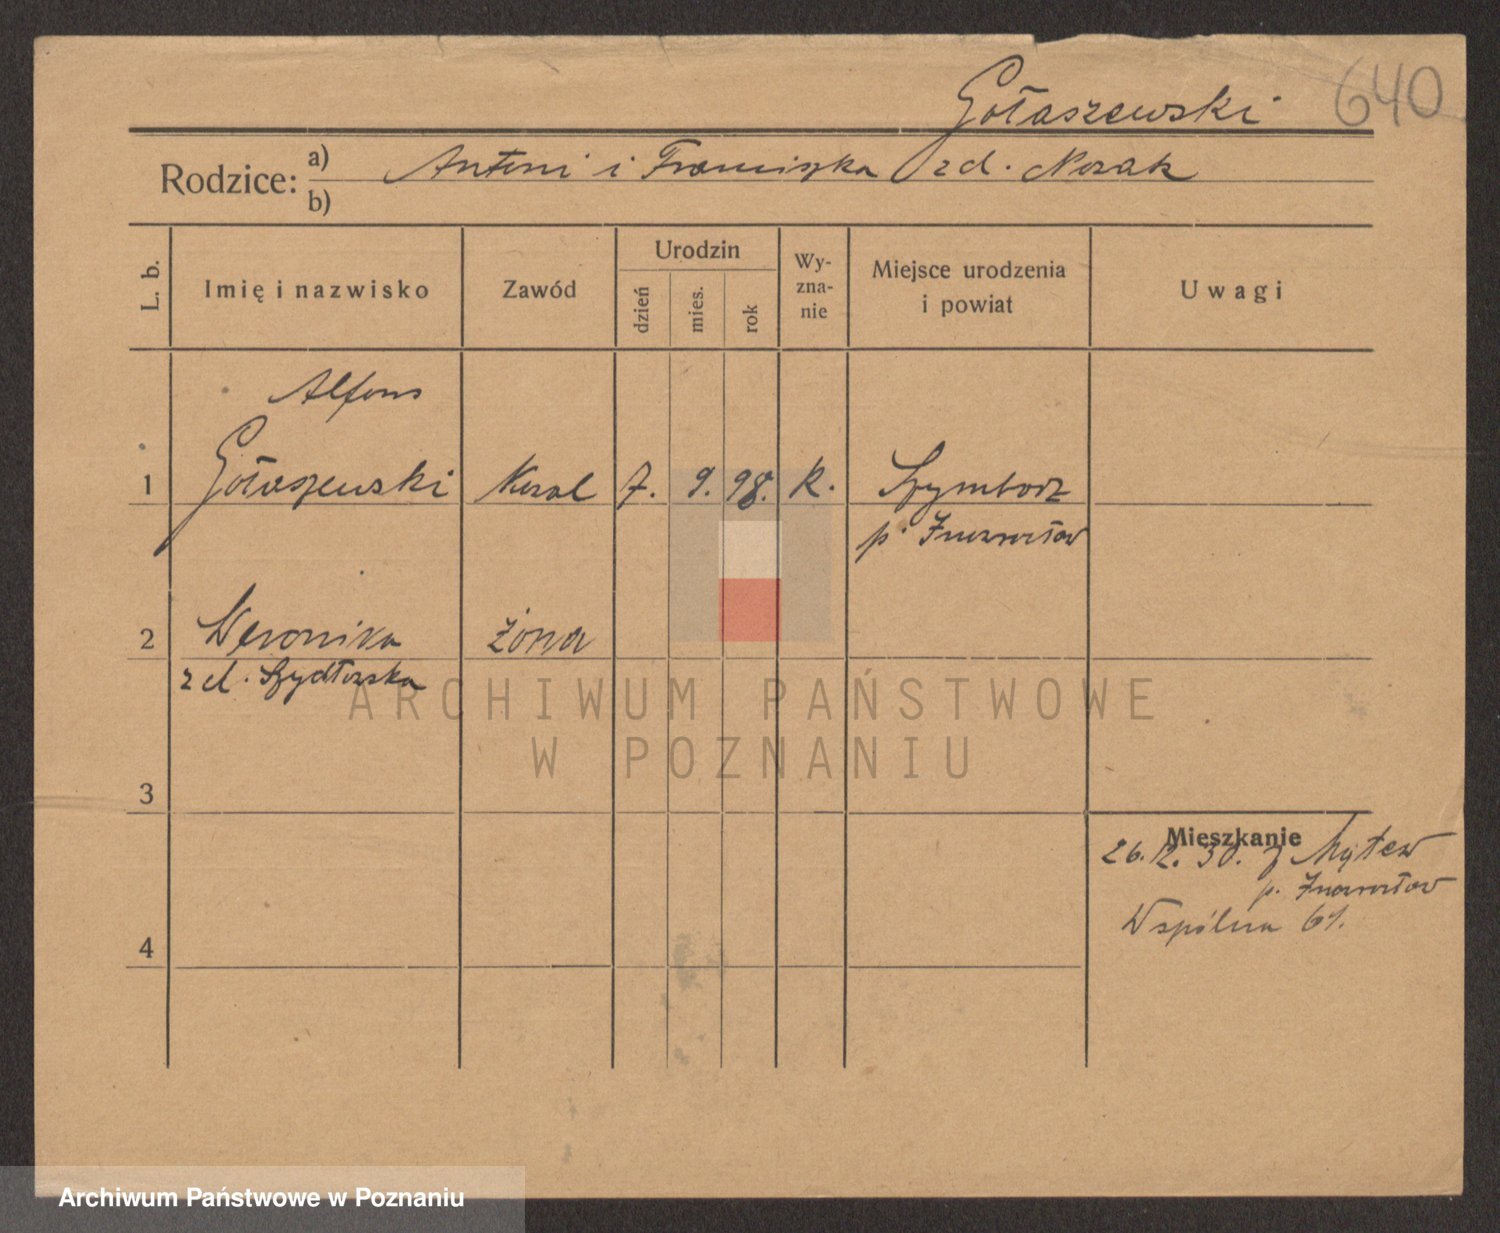 Gołaszewski 640
Rodzice: a) Antoni i Franciszka zd. Nozak
b)
L. b.
Imię i nazwisko
Zawód
Urodzin
dzień
mies.
rok
Wy-
zna-
nie
Miejsce urodzenia
i powiat
Uwagi
Alfons
1 Gołaszewski Kowal 7. 9. 98. R. Szymborz
p. Inowrocław
2 Weronika żona
zd. Szydłowska
ARCHIWUM PAŃSTWOWE
W POZNANIU
3
Mieszkanie
26.12.30. z
p. Inowrocław
Wspólna 61.
4
Archiwum Państwowe w Poznaniu